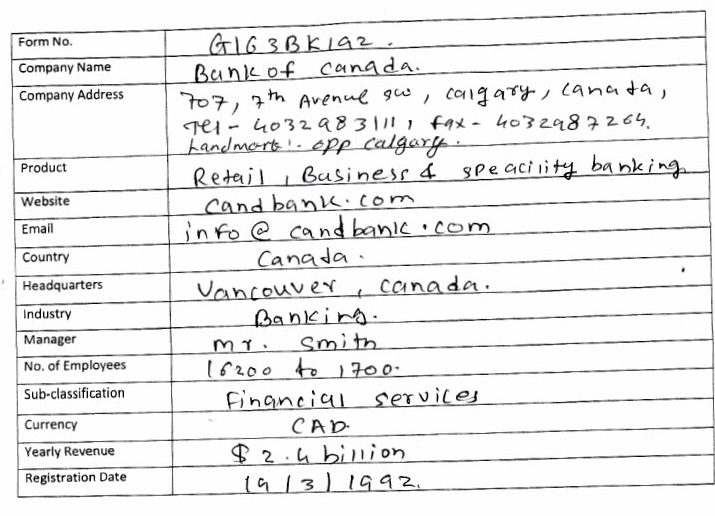 Form No. G1G3BK192.
Company Name Bank of Canada.
Company Address 707, 7th Avenue sw, Calgary, Canada,
Tel - 4032983111, fax - 4032987264.
Landmark :- opp calgary.
Product Retail, Business & speacility banking
Website candbank.com
Email info@candbank.com
Country Canada.
Headquarters Vancouver, Canada.
Industry Banking.
Manager mr. Smith
No. of Employees 16200 to 1700.
Sub-classification Financial services
Currency CAD.
Yearly Revenue $2.4 billion
Registration Date 19/3/1992.